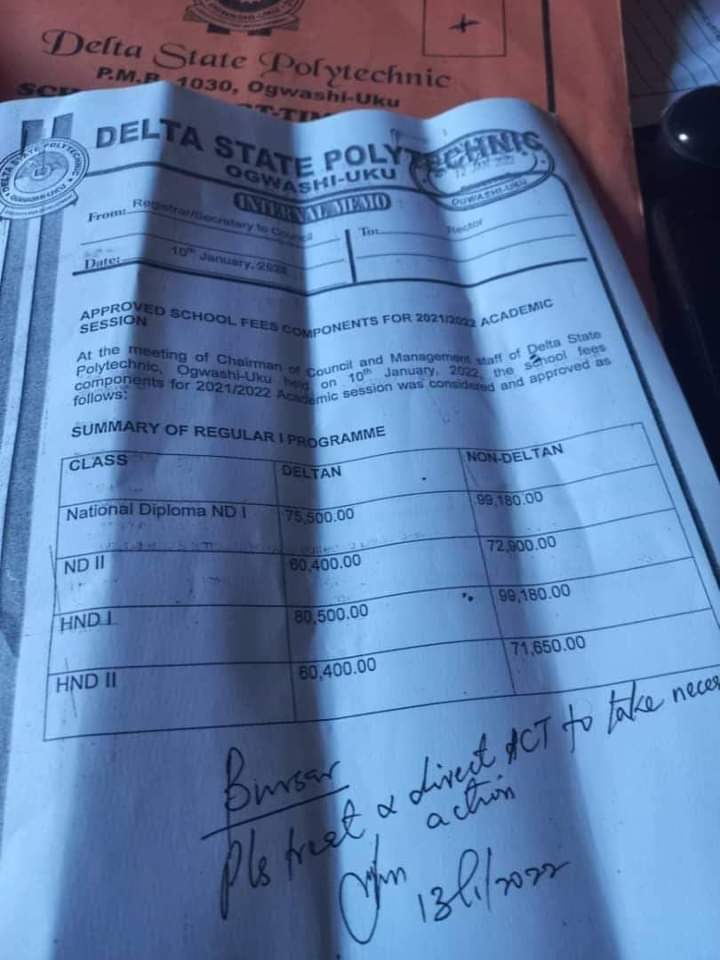 Delta State Polytechnic
P.M.B. 1030, Ogwashi-Uku
DELTA STATE POLYTECHNIC
OGWASHI-UKU
INTERNAL MEMO
From: Registrar/Secretary to Council
To: Rector
Date: 10th January, 2022
APPROVED SCHOOL FEES COMPONENTS FOR 2021/2022 ACADEMIC
SESSION
At the meeting of Chairman of Council and Management staff of Delta State
Polytechnic, Ogwashi-Uku held on 10th January, 2022, the school fees
components for 2021/2022 Academic session was considered and approved as
follows:
SUMMARY OF REGULAR I PROGRAMME
CLASS DELTAN NON-DELTAN
National Diploma ND I 75,500.00 99,180.00
ND II 60,400.00 72,900.00
HND I 80,500.00 99,180.00
HND II 60,400.00 71,650.00
Bursar
Pls treat & direct ACT to take neces
action
13/1/2022